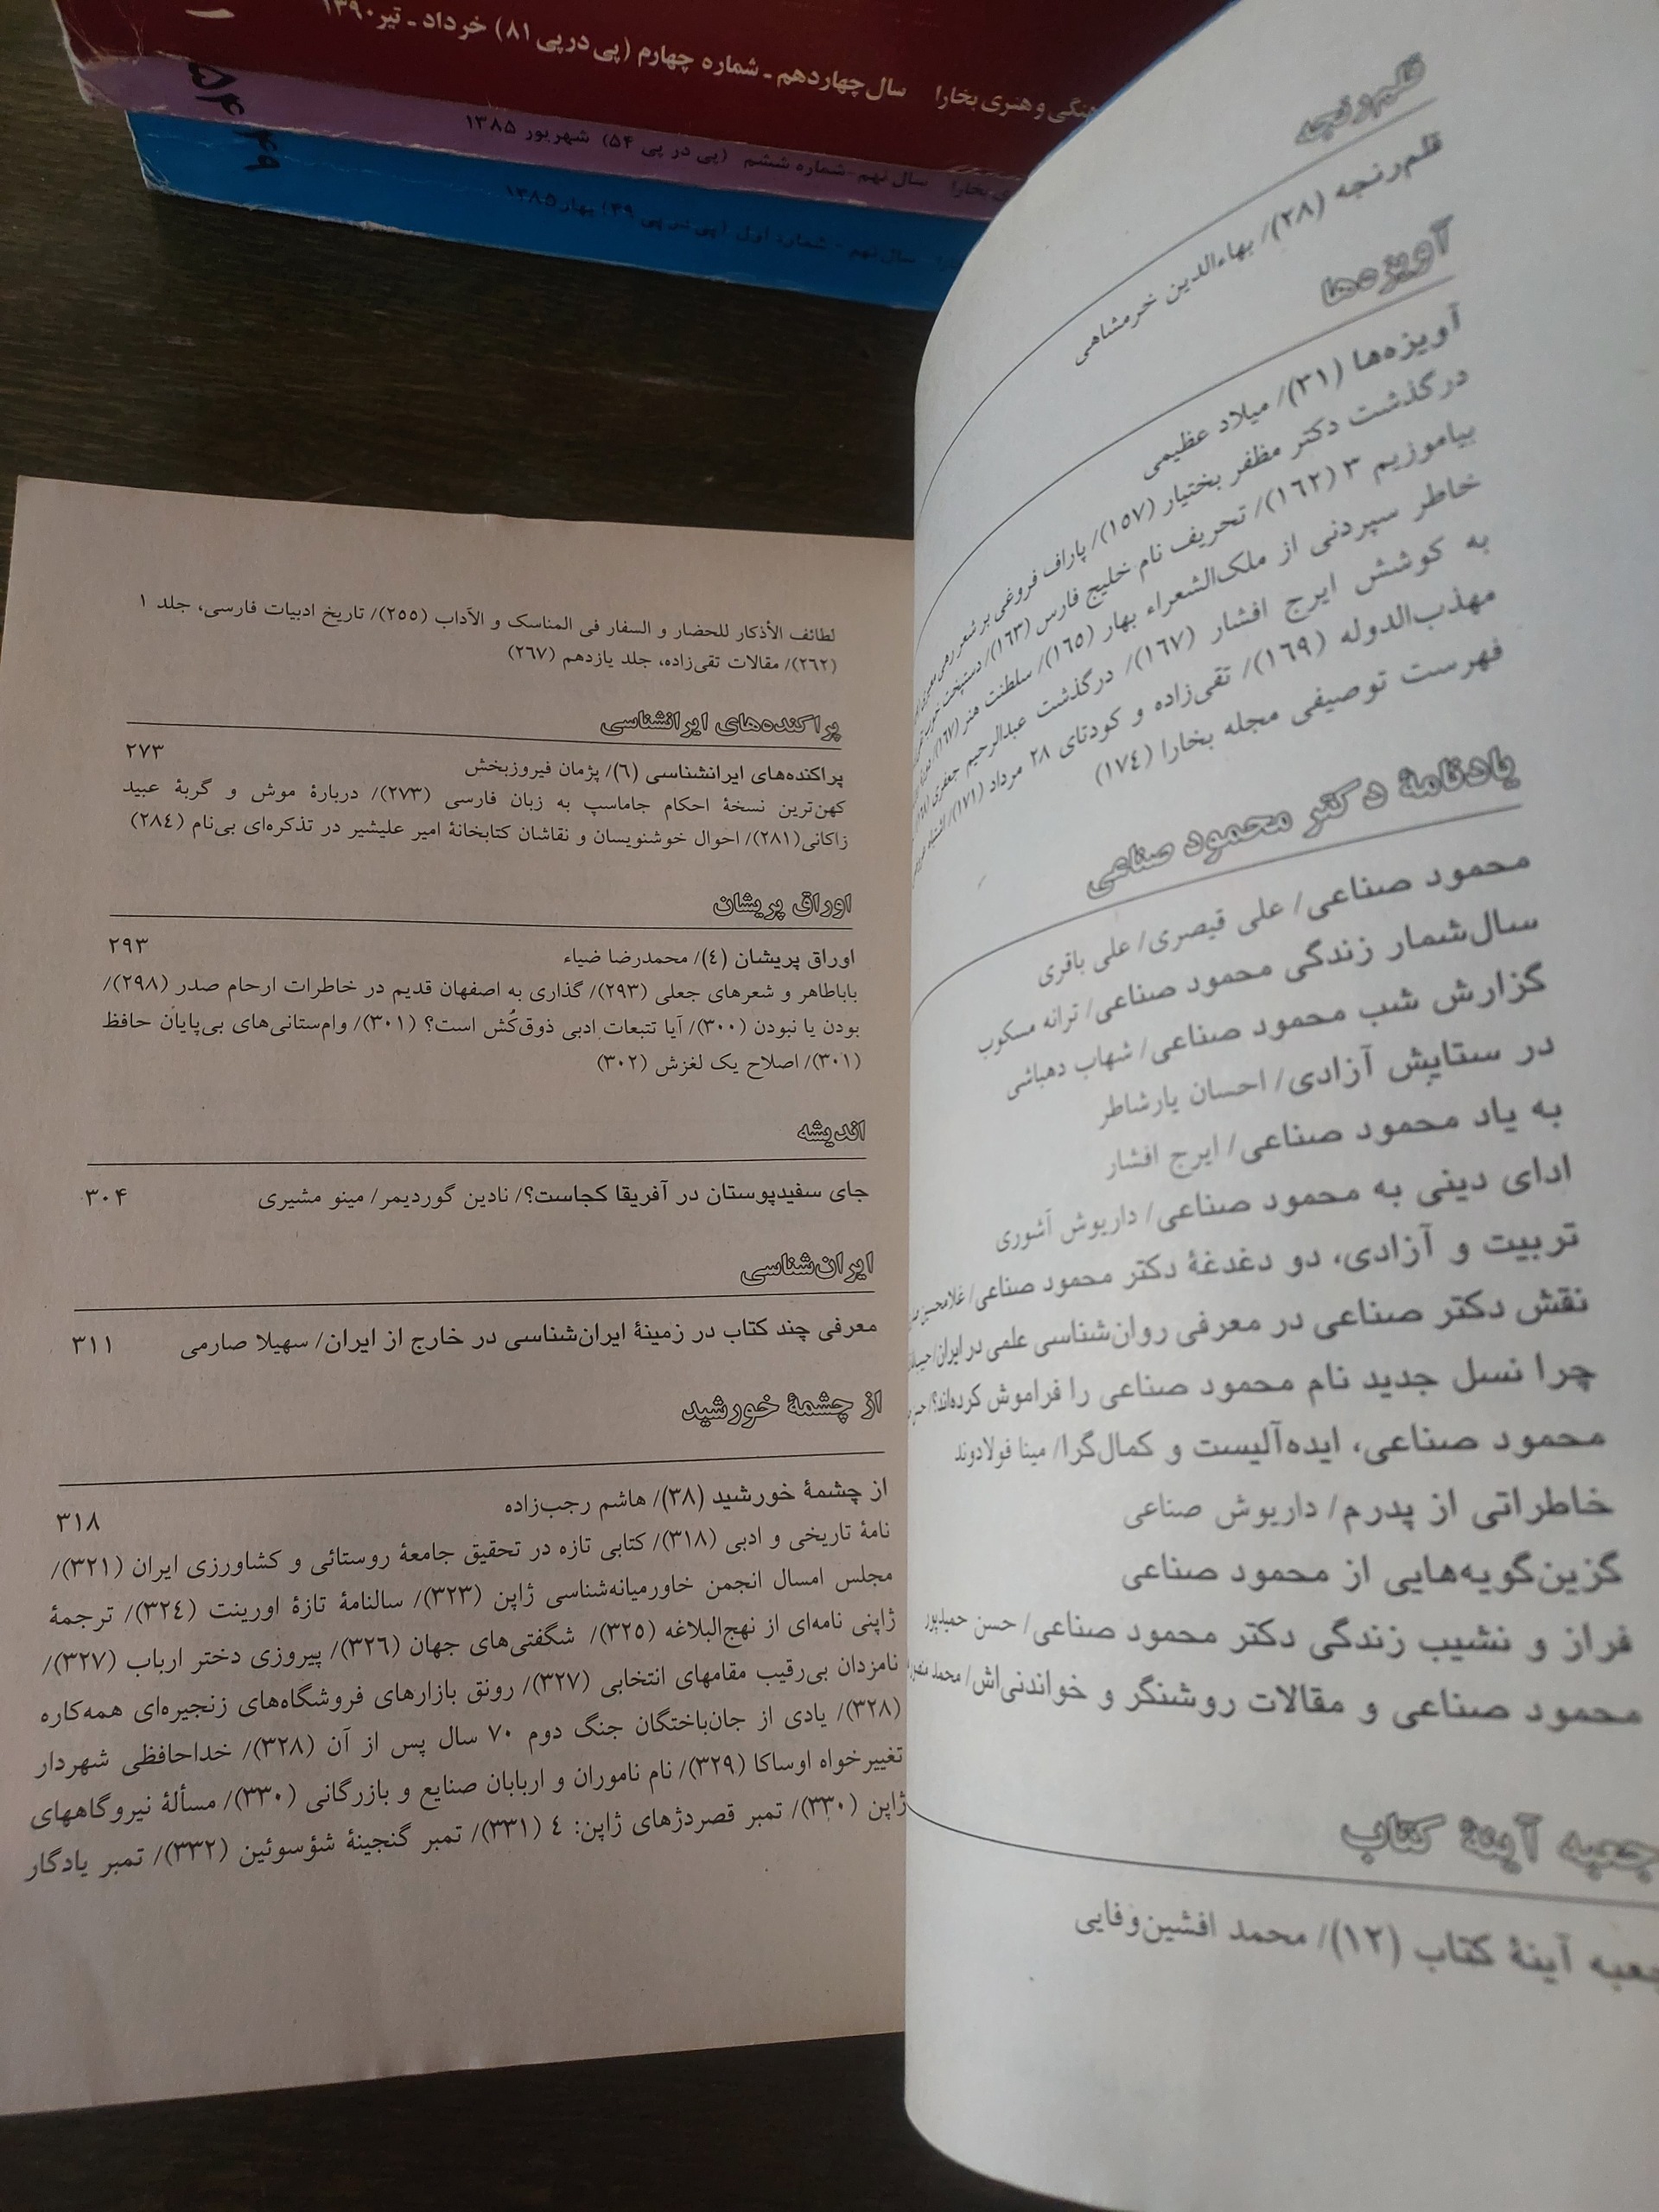 هنگی و هنری بخارا سال چهاردهم ـ شماره چهارم (پی در پی ۸۱) خرداد ـ تیر ۱۳۹۰
ی بخارا سال نهم - شماره ششم (پی در پی ۵۴) شهریور ۱۳۸۵
سال نهم - شماره اول (پی در پی ۴۹) بهار ۱۳۸۵
۵۴
۴۹
قلم‌رنجه
قلم‌رنجه (۲۸)/ بهاءالدین خرمشاهی
آویزه‌ها
آویزه‌ها (۳۱)/ میلاد عظیمی
درگذشت دکتر مظفر بختیار (۱۵۷)/ پاراف فروغی بر شعر رهی
بیاموزیم ۳ (۱۶۲)/ تحریف نام خلیج فارس (۱۶۳)/ دستپخت
خاطر سپردنی از ملک‌الشعراء بهار (۱۶۵)/ سلطنت هنر (۱۶۷)/
به کوشش ایرج افشار (۱۶۷)/ درگذشت عبدالرحیم جعفری
مهذب‌الدوله (۱۶۹)/ تقی‌زاده و کودتای ۲۸ مرداد (۱۷۱)/
فهرست توصیفی مجله بخارا (۱۷۴)
یادنامهٔ دکتر محمود صناعی
محمود صناعی/ علی قیصری/ علی باقری
سال‌شمار زندگی محمود صناعی/ ترانه مسکوب
گزارش شب محمود صناعی/ شهاب دهباشی
در ستایش آزادی/ احسان یارشاطر
به یاد محمود صناعی/ ایرج افشار
ادای دینی به محمود صناعی/ داریوش آشوری
تربیت و آزادی، دو دغدغهٔ دکتر محمود صناعی/ غلامحسین
نقش دکتر صناعی در معرفی روان‌شناسی علمی در ایران/
چرا نسل جدید نام محمود صناعی را فراموش کرده‌اند؟/
محمود صناعی، ایده‌آلیست و کمال‌گرا/ مینا فولادوند
خاطراتی از پدرم/ داریوش صناعی
گزین‌گویه‌هایی از محمود صناعی
فراز و نشیب زندگی دکتر محمود صناعی/ حسن حمیدپور
محمود صناعی و مقالات روشنگر و خواندنی‌اش/ محمد
جعبه آینهٔ کتاب
جعبه آینهٔ کتاب (۱۲)/ محمد افشین‌وفایی
لطائف الأذکار للحضار و السفار فی المناسک و الآداب (۲۵۵)/ تاریخ ادبیات فارسی، جلد ۱
(۲۶۲)/ مقالات تقی‌زاده، جلد یازدهم (۲۶۷)
پراکنده‌های ایرانشناسی
پراکنده‌های ایرانشناسی (۶)/ پژمان فیروزبخش ۲۷۳
کهن‌ترین نسخهٔ احکام جاماسپ به زبان فارسی (۲۷۳)/ دربارهٔ موش و گربهٔ عبید
زاکانی(۲۸۱)/ احوال خوشنویسان و نقاشان کتابخانهٔ امیر علیشیر در تذکره‌ای بی‌نام (۲۸۴)
اوراق پریشان
اوراق پریشان (۴)/ محمدرضا ضیاء ۲۹۳
باباطاهر و شعرهای جعلی (۲۹۳)/ گذاری به اصفهان قدیم در خاطرات ارحام صدر (۲۹۸)/
بودن یا نبودن (۳۰۰)/ آیا تتبعات ادبی ذوق‌کُش است؟ (۳۰۱)/ وام‌ستانی‌های بی‌پایان حافظ
(۳۰۱)/ اصلاح یک لغزش (۳۰۲)
اندیشه
جای سفیدپوستان در آفریقا کجاست؟/ نادین گوردیمر/ مینو مشیری ۳۰۴
ایران‌شناسی
معرفی چند کتاب در زمینهٔ ایران‌شناسی در خارج از ایران/ سهیلا صارمی ۳۱۱
از چشمهٔ خورشید
از چشمهٔ خورشید (۳۸)/ هاشم رجب‌زاده ۳۱۸
نامهٔ تاریخی و ادبی (۳۱۸)/ کتابی تازه در تحقیق جامعهٔ روستائی و کشاورزی ایران (۳۲۱)/
مجلس امسال انجمن خاورمیانه‌شناسی ژاپن (۳۲۳)/ سالنامهٔ تازهٔ اورینت (۳۲۴)/ ترجمهٔ
ژاپنی نامه‌ای از نهج‌البلاغه (۳۲۵)/ شگفتی‌های جهان (۳۲۶)/ پیروزی دختر ارباب (۳۲۷)/
نامزدان بی‌رقیب مقامهای انتخابی (۳۲۷)/ رونق بازارهای فروشگاه‌های زنجیره‌ای همه‌کاره
(۳۲۸)/ یادی از جان‌باختگان جنگ دوم ۷۰ سال پس از آن (۳۲۸)/ خداحافظی شهردار
تغییرخواه اوساکا (۳۲۹)/ نام ناموران و اربابان صنایع و بازرگانی (۳۳۰)/ مسألهٔ نیروگاههای
ژاپن (۳۳۰)/ تمبر قصردژهای ژاپن: ۴ (۳۳۱)/ تمبر گنجینهٔ شؤسوئین (۳۳۲)/ تمبر یادگار